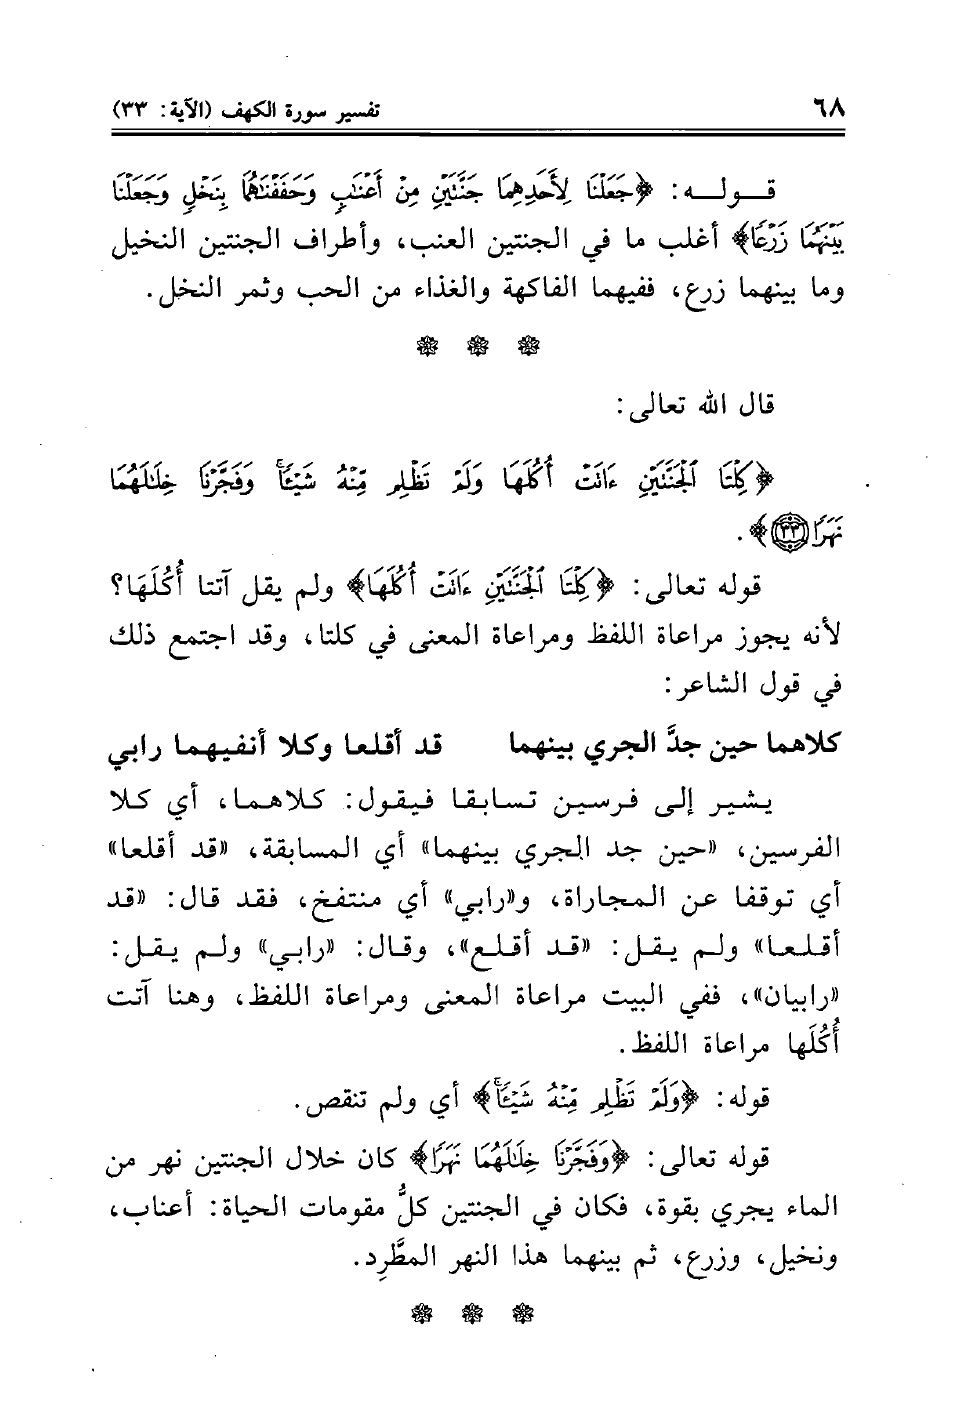 ٦٨ تفسير سورة الكهف (الآية: ٣٣)
قوله: ﴿جَعَلْنَا لِأَحَدِهِمَا جَنَّتَيْنِ مِنْ أَعْنَٰبٍ وَحَفَفْنَٰهُمَا بِنَخْلٍ وَجَعَلْنَا
بَيْنَهُمَا زَرْعًا﴾ أغلب ما في الجنتين العنب، وأطراف الجنتين النخيل
وما بينهما زرع، ففيهما الفاكهة والغذاء من الحب وثمر النخل.
قال الله تعالى:
﴿كِلْتَا ٱلْجَنَّتَيْنِ ءَاتَتْ أُكُلَهَا وَلَمْ تَظْلِم مِّنْهُ شَيْـًٔا ۚ وَفَجَّرْنَا خِلَٰلَهُمَا
نَهَرًا ٣٣﴾.
قوله تعالى: ﴿كِلْتَا ٱلْجَنَّتَيْنِ ءَاتَتْ أُكُلَهَا﴾ ولم يقل آتتا أُكُلَهَا؟
لأنه يجوز مراعاة اللفظ ومراعاة المعنى في كلتا، وقد اجتمع ذلك
في قول الشاعر:
كلاهما حين جدَّ الجري بينهما قد أقلعا وكلا أنفيهما رابي
يشير إلى فرسين تسابقا فيقول: كلاهما، أي كلا
الفرسين، «حين جد الجري بينهما» أي المسابقة، «قد أقلعا»
أي توقفا عن المجاراة، و«رابي» أي منتفخ، فقد قال: «قد
أقلعا» ولم يقل: «قد أقلع»، وقال: «رابي» ولم يقل:
«رابيان»، ففي البيت مراعاة المعنى ومراعاة اللفظ، وهنا آتت
أُكُلَها مراعاة اللفظ.
قوله: ﴿وَلَمْ تَظْلِم مِّنْهُ شَيْـًٔا ۚ﴾ أي ولم تنقص.
قوله تعالى: ﴿وَفَجَّرْنَا خِلَٰلَهُمَا نَهَرًا﴾ كان خلال الجنتين نهر من
الماء يجري بقوة، فكان في الجنتين كلُّ مقومات الحياة: أعناب،
ونخيل، وزرع، ثم بينهما هذا النهر المطَّرِد.